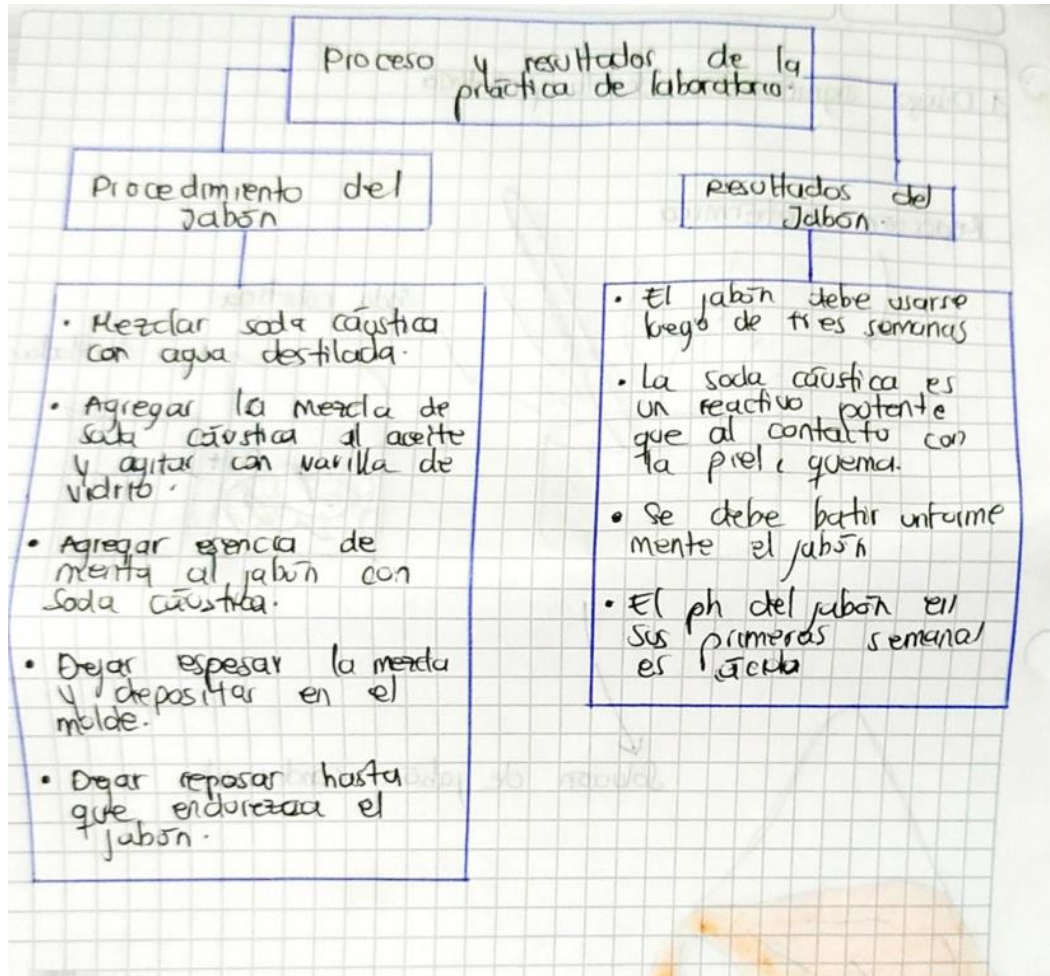 Proceso y resultados de la
práctica de laboratorio.
Procedimiento del
Jabón
Resultados del
Jabón.
• Mezclar soda cáustica
con agua destilada.
• Agregar la mezcla de
soda cáustica al aceite
y agitar con varilla de
vidrio.
• Agregar esencia de
menta al jabón con
soda cáustica.
• Dejar espesar la mezcla
y depositar en el
molde.
• Dejar reposar hasta
que endurezca el
jabón.
• El jabón debe usarse
luego de tres semanas
• La soda cáustica es
un reactivo potente
que al contacto con
la piel, quema.
• Se debe batir uniforme
mente el jabón
• El ph del jabón en
sus primeras semanas
es